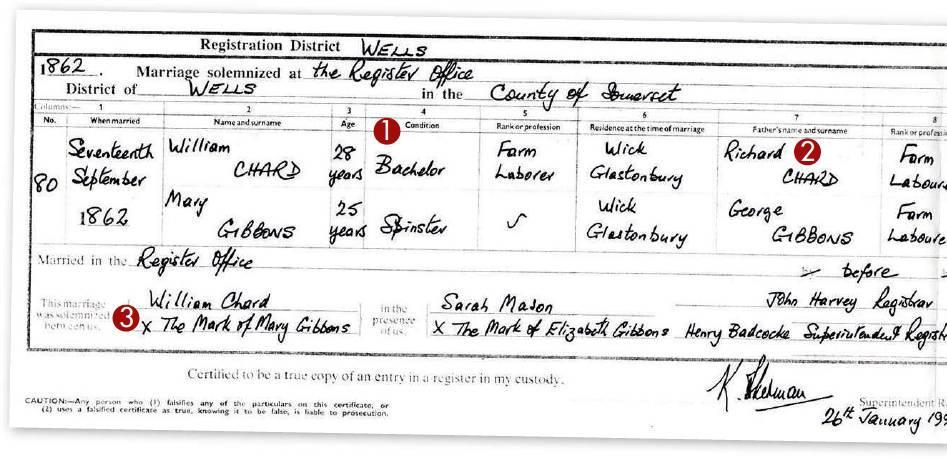 Registration District WELLS
1862. Marriage solemnized at the Register Office
District of WELLS in the County of Somerset
Columns:— 1 2 3 4 5 6 7 8
No. When married Name and surname Age 1 Condition Rank or profession Residence at the time of marriage Father's name and surname Rank or profess
80 Seventeenth William 28 Bachelor Farm Wick Richard 2 Farm
September CHARD years Laborer Glastonbury CHARD Labour
1862 Mary 25 Spinster Wick George Farm
GIBBONS years Glastonbury GIBBONS Laboure
Married in the Register Office before
This marriage was solemnized between us, William Chard in the presence of us, Sarah Mason John Harvey Registrar
3 X The Mark of Mary Gibbons X The Mark of Elizabeth Gibbons Henry Badcocke Superintendent Registr
Certified to be a true copy of an entry in a register in my custody.
CAUTION:—Any person who (1) falsifies any of the particulars on this certificate, or
(2) uses a falsified certificate as true, knowing it to be false, is liable to prosecution.
Superintendent R
26th January 199